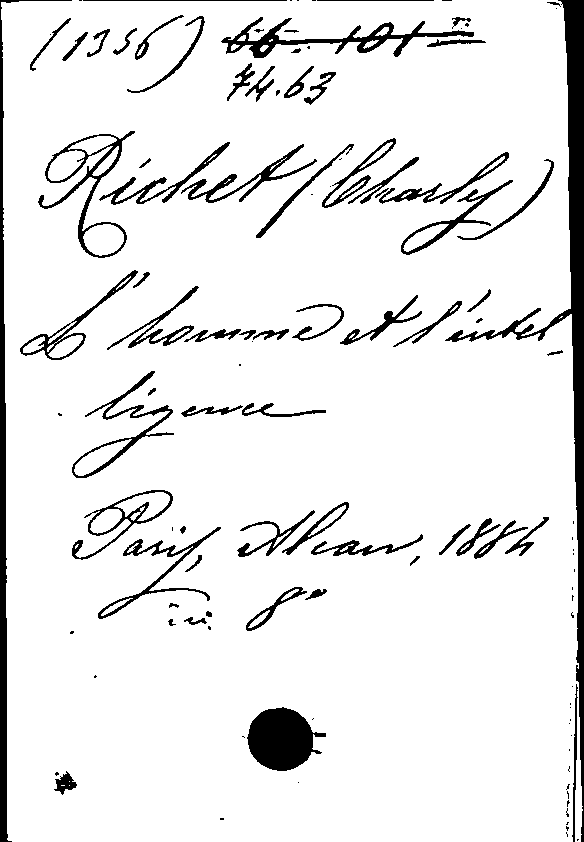 (1356) 66. 101 m
74.63
Richet (Charles)
L'homme et l'intel-
ligence
Paris, Alcan, 1884
in 8°